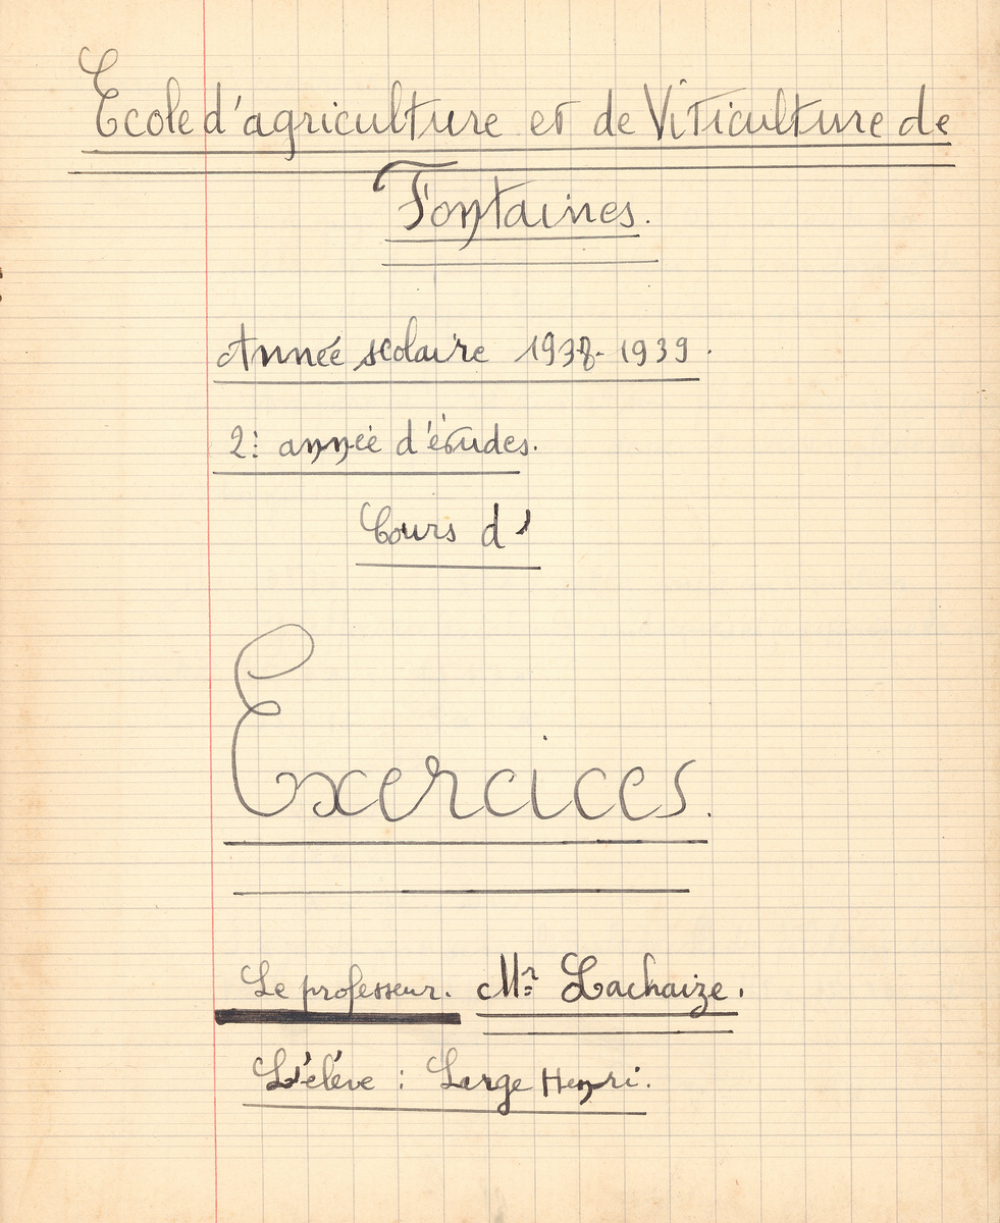 Ecole d'agriculture et de Viticulture de
Fontaines.
Année scolaire 1938-1939.
2: année d'études.
Cours d'
Exercices.
Le professeur. Mr Lachaize.
L'élève : Large Henri.